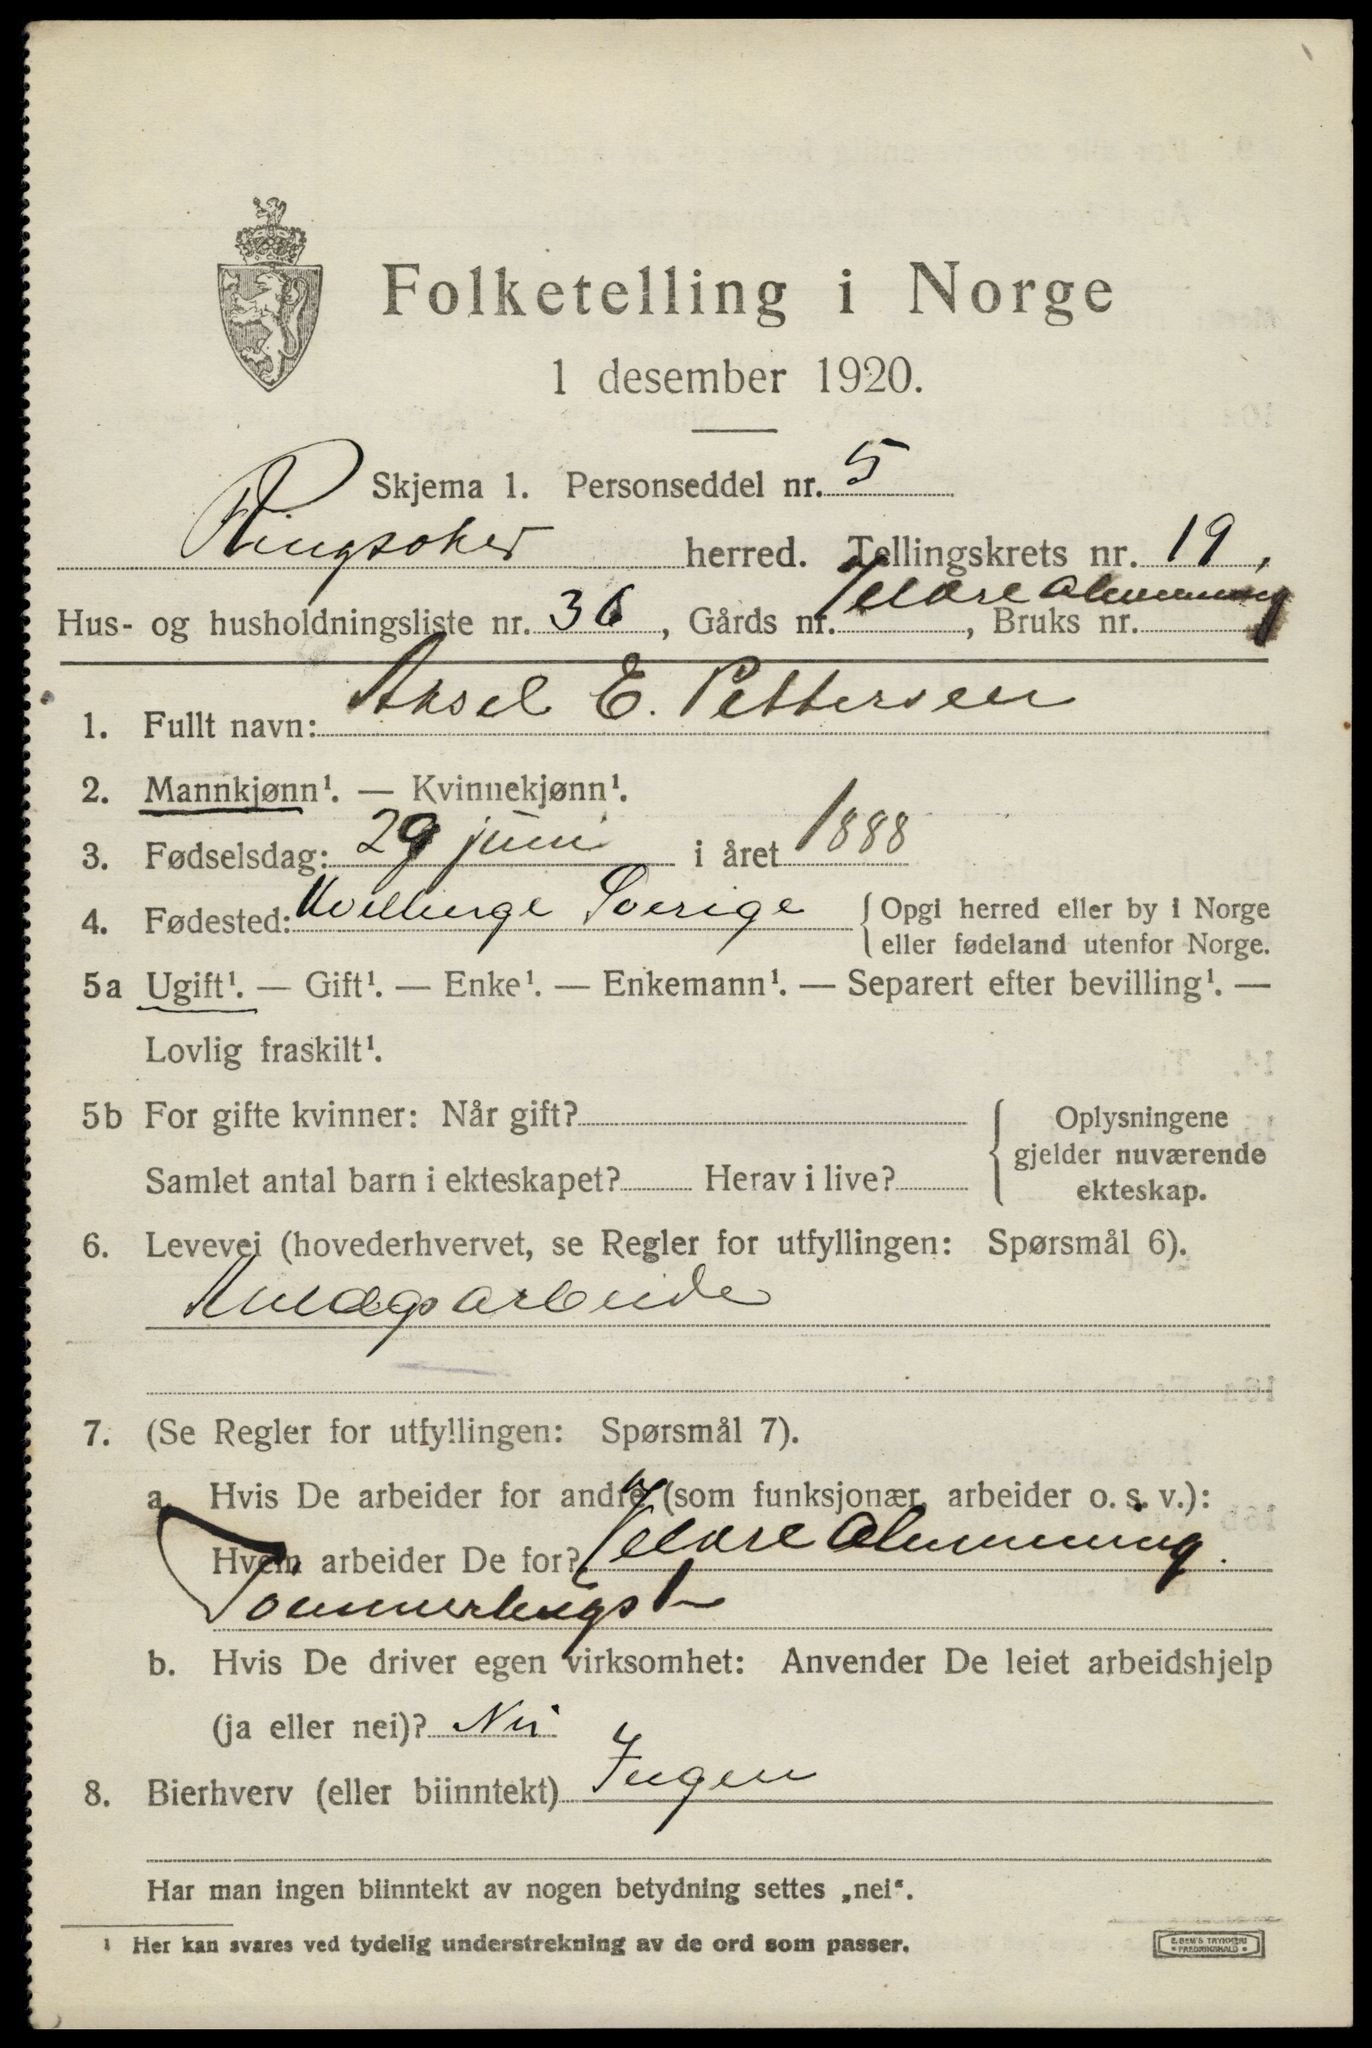 Folketelling i Norge
1 desember 1920.
Skjema 1. Personseddel nr. 5
Ringsaker herred. Tellingskrets nr. 19,
Hus- og husholdningsliste nr. 36, Gårds nr. Veldre Almenning, Bruks nr.
1. Fullt navn: Aksel E. Pettersen
2. Mannkjønn¹. — Kvinnekjønn¹.
3. Fødselsdag: 29 juni i året 1888
4. Fødested: Sverige { Opgi herred eller by i Norge
eller fødeland utenfor Norge.
5a Ugift¹. — Gift¹. — Enke¹. — Enkemann¹. — Separert efter bevilling¹. —
Lovlig fraskilt¹.
5b For gifte kvinner: Når gift? { Oplysningene
gjelder nuværende
Samlet antal barn i ekteskapet? Herav i live?
ekteskap.
6. Levevei (hovederhvervet, se Regler for utfyllingen: Spørsmål 6).
Anlægsarbeide
7. (Se Regler for utfyllingen: Spørsmål 7).
a. Hvis De arbeider for andre (som funksjonær, arbeider o. s. v.):
Hvem arbeider De for? Veldre Almenning.
b. Hvis De driver egen virksomhet: Anvender De leiet arbeidshjelp
(ja eller nei)? Nei
8. Bierhverv (eller biinntekt) Ingen
Har man ingen biinntekt av nogen betydning settes „nei“.
¹ Her kan svares ved tydelig understrekning av de ord som passer.
E. SEM'S TRYKKERI
FREDRIKSHALD